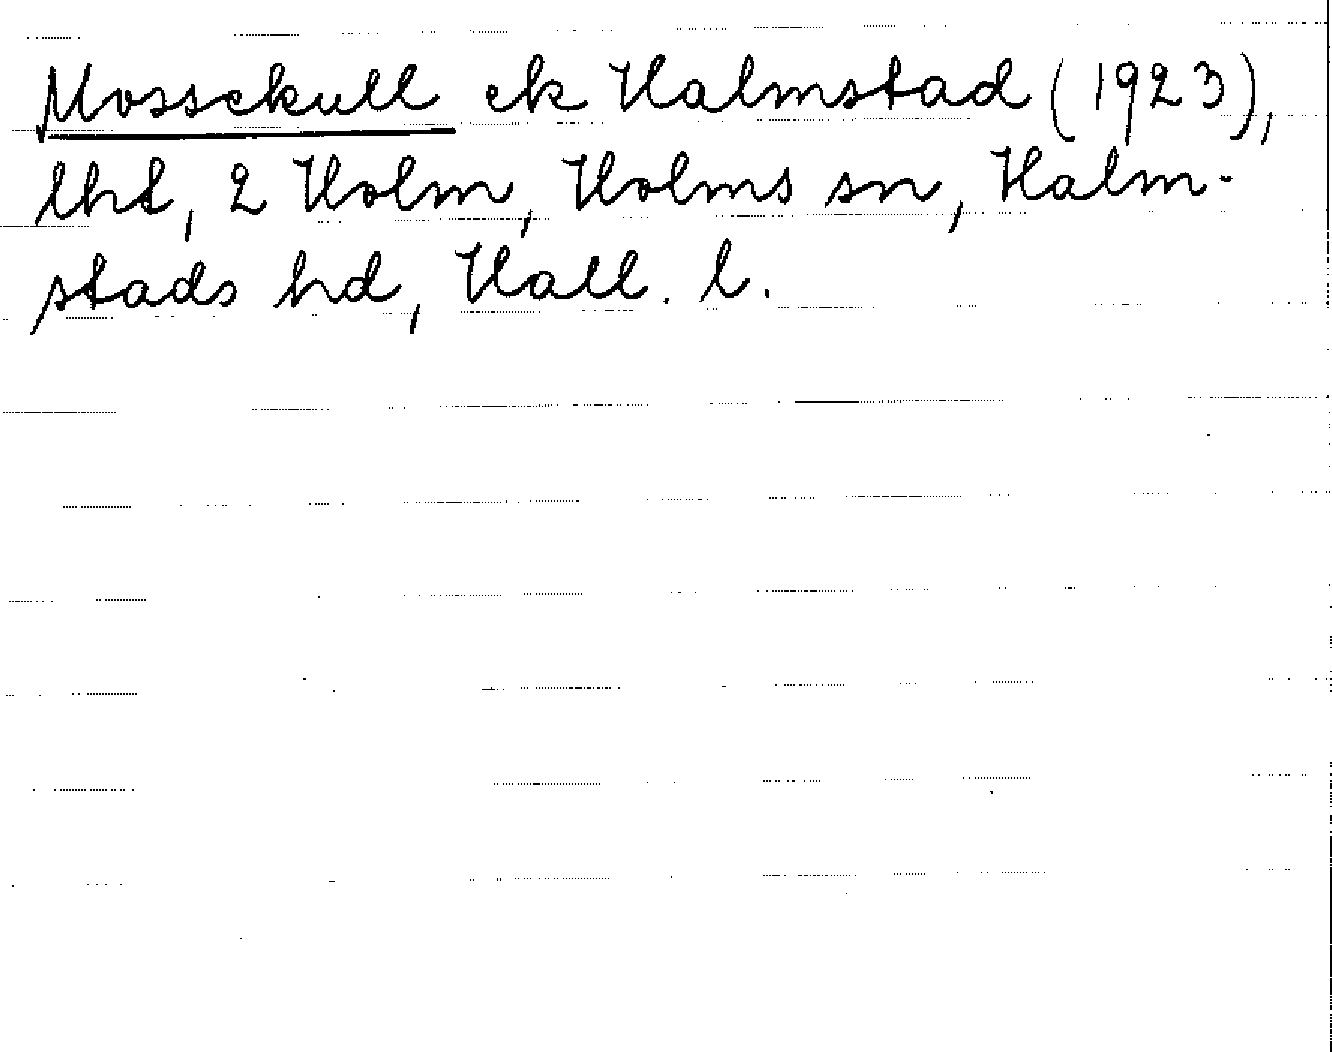 Mossekull ek Halmstad (1923),
lht, 2 Holm, Holms sn, Halm-
stads hd, Hall. l.